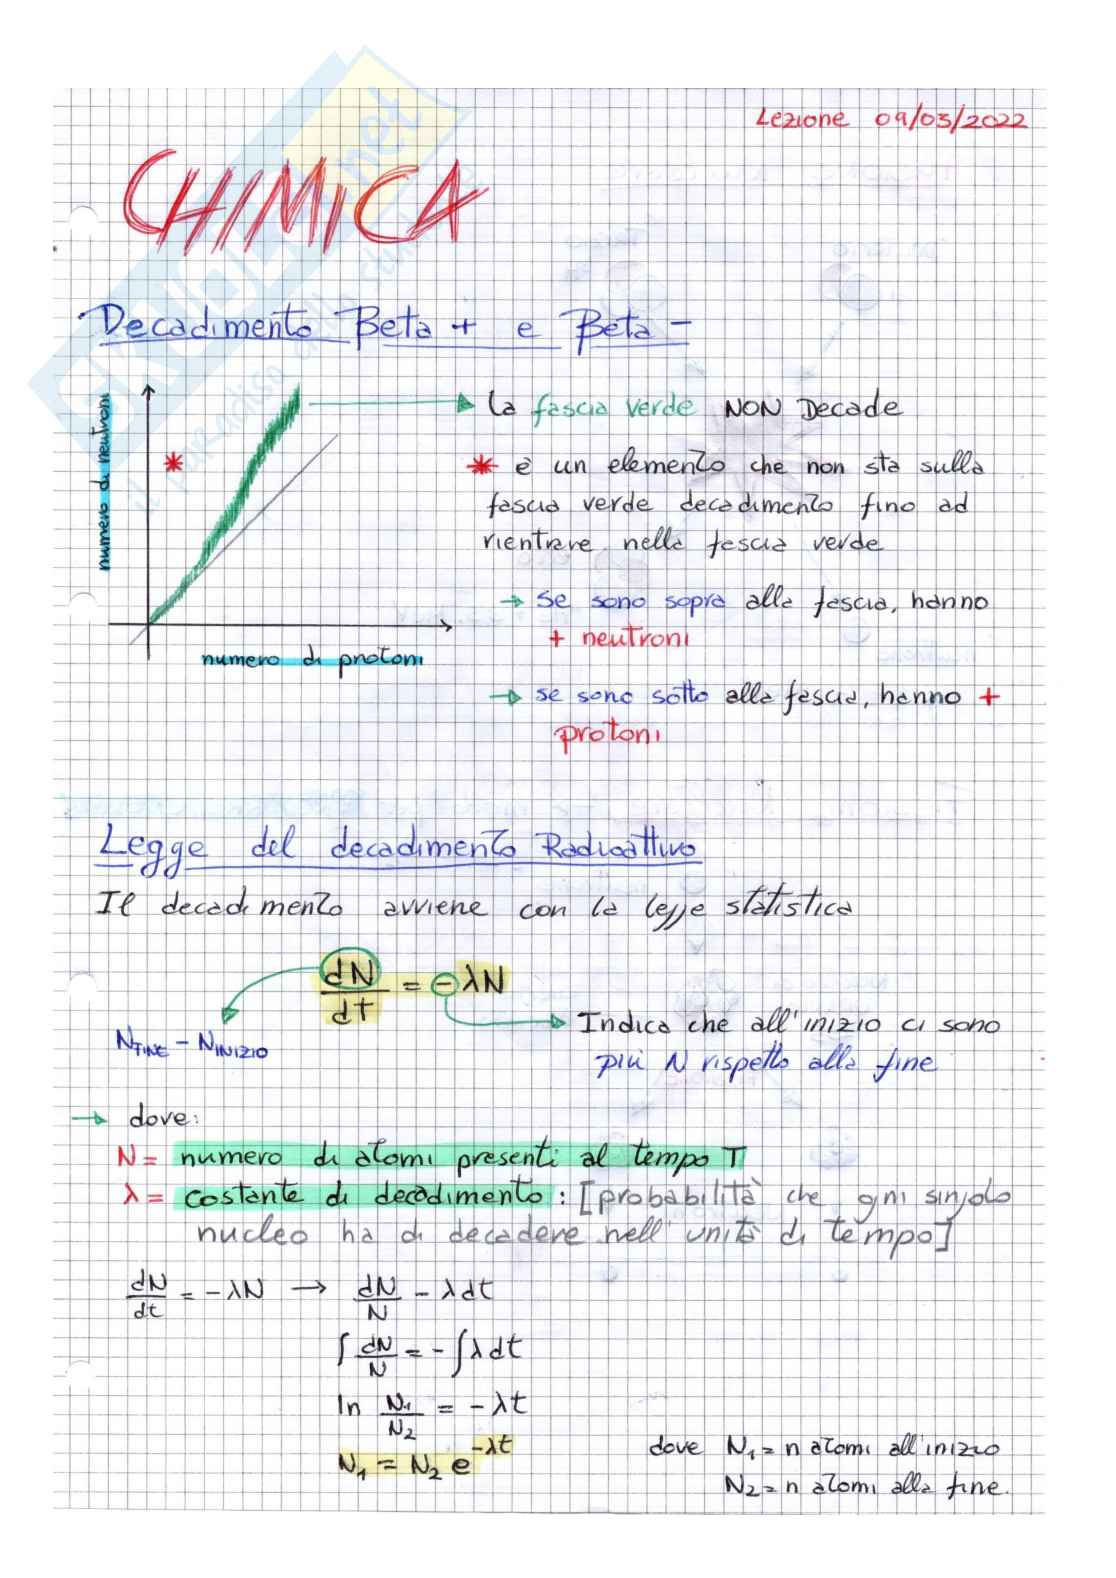 Lezione 09/03/2022
CHIMICA
Decadimento Beta + e Beta -
numero di neutroni
numero di protoni
la fascia verde NON Decade
* è un elemento che non sta sulla
fascia verde decadimento fino ad
rientrare nella fascia verde
→ se sono sopra alla fascia, hanno
+ neutroni
→ se sono sotto alla fascia, hanno +
protoni
Legge del decadimento Radioattivo
Il decadimento avviene con la legge statistica
dN/dt = -λN
N_FINE - N_INIZIO
Indica che all'inizio ci sono
più N rispetto alla fine
→ dove:
N = numero di atomi presenti al tempo T
λ = costante di decadimento : [probabilità che ogni singolo
nucleo ha di decadere nell'unità di tempo]
dN/dt = -λN → dN/N - λdt
∫ dN/N = - ∫ λdt
ln N₁/N₂ = -λt
N₁ = N₂ e^-λt
dove N₁ = n atomi all'inizio
N₂ = n atomi alla fine.
SKUOLA.net
il paradiso dello studente